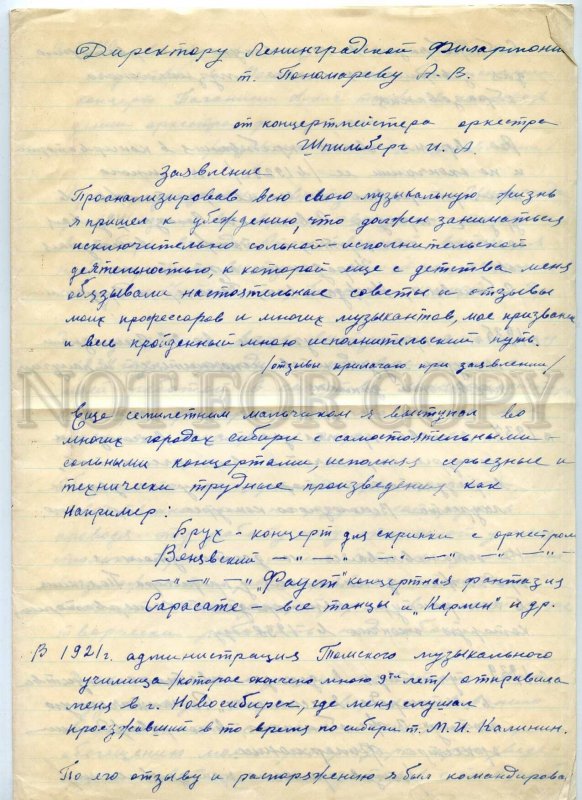 Директору Ленинградской Филармони
т. Пономареву А. В.
от концертмейстера оркестра
Шпильберг И. А.
Заявление
Проанализировав всю свою музыкальную жизнь
я пришел к убеждению, что должен заниматься
исключительно сольной-исполнительской
деятельностью, к которой еще с детства меня
обязывали настоятельные советы и отзывы
моих профессоров и многих музыкантов, мое призвани
и весь пройденный мною исполнительский путь.
/отзывы прилагаю при заявлении/
NOT FOR COPY
Еще семилетним мальчиком я выступал во
многих городах сибири с самостоятельными
сольными концертами, исполняя серьезные и
технически трудные произведения как
например:
Брух - концерт для скрипки с оркестром
Венявский —"—"—"—"—"—"—
—"—"—" "Фауст" концертная фантазия
Сарасате - все танцы и "Кармен" и др.
В 1921 г. администрация Томского музыкального
училища /которое окончено мною 9ти лет/ отправила
меня в г. Новосибирск, где меня слушал
проезжавший в то время по сибири т. М. И. Калинин.
По его отзыву и распоряжению я был командирова